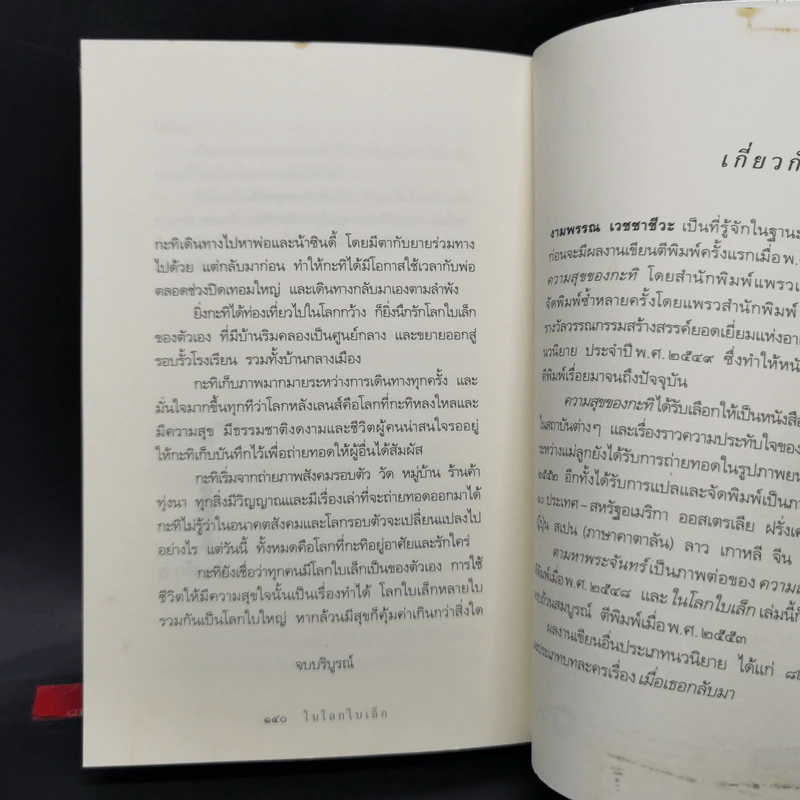 กะทิเดินทางไปหาพ่อและน้าซินดี้ โดยมีตากับยายร่วมทาง
ไปด้วย แต่กลับมาก่อน ทำให้กะทิได้มีโอกาสใช้เวลากับพ่อ
ตลอดช่วงปิดเทอมใหญ่ และเดินทางกลับมาเองตามลำพัง
ยิ่งกะทิได้ท่องเที่ยวไปในโลกกว้าง ก็ยิ่งนึกรักโลกใบเล็ก
ของตัวเอง ที่มีบ้านริมคลองเป็นศูนย์กลาง และขยายออกสู่
รอบรั้วโรงเรียน รวมทั้งบ้านกลางเมือง
กะทิเก็บภาพมากมายระหว่างการเดินทางทุกครั้ง และ
มั่นใจมากขึ้นทุกทีว่าโลกหลังเลนส์คือโลกที่กะทิหลงใหลและ
มีความสุข มีธรรมชาติงดงามและชีวิตผู้คนน่าสนใจรออยู่
ให้กะทิเก็บบันทึกไว้เพื่อถ่ายทอดให้ผู้อื่นได้สัมผัส
กะทิเริ่มจากถ่ายภาพสังคมรอบตัว วัด หมู่บ้าน ร้านค้า
ทุ่งนา ทุกสิ่งมีวิญญาณและมีเรื่องเล่าที่จะถ่ายทอดออกมาได้
กะทิไม่รู้ว่าในอนาคตสังคมและโลกรอบตัวจะเปลี่ยนแปลงไป
อย่างไร แต่วันนี้ ทั้งหมดคือโลกที่กะทิอยู่อาศัยและรักใคร่
กะทิยังเชื่อว่าทุกคนมีโลกใบเล็กเป็นของตัวเอง การใช้
ชีวิตให้มีความสุขใจนั้นเป็นเรื่องทำได้ โลกใบเล็กหลายใบ
รวมกันเป็นโลกใบใหญ่ หากล้วนมีสุขก็คุ้มค่าเกินกว่าสิ่งใด
จบบริบูรณ์
๑๔๐ ในโลกใบเล็ก
เกี่ยวกั
งามพรรณ เวชชาชีวะ เป็นที่รู้จักในฐานะ
ก่อนจะมีผลงานเขียนตีพิมพ์ครั้งแรกเมื่อ พ.
ความสุขของกะทิ โดยสำนักพิมพ์แพรวเ
จัดพิมพ์ซ้ำหลายครั้งโดยแพรวสำนักพิมพ์
รางวัลวรรณกรรมสร้างสรรค์ยอดเยี่ยมแห่งอา
นวนิยาย ประจำปี พ.ศ. ๒๕๔๙ ซึ่งทำให้หนั
ตีพิมพ์เรื่อยมาจนถึงปัจจุบัน
ความสุขของกะทิ ได้รับเลือกให้เป็นหนังสือ
ในสถาบันต่างๆ และเรื่องราวความประทับใจของ
ระหว่างแม่ลูกยังได้รับการถ่ายทอดในรูปภาพยน
๒๕๕๒ อีกทั้งได้รับการแปลและจัดพิมพ์เป็นภา
๑๐ ประเทศ – สหรัฐอเมริกา ออสเตรเลีย ฝรั่งเศ
ญี่ปุ่น สเปน (ภาษาคาตาลัน) ลาว เกาหลี จีน
ตามหาพระจันทร์ เป็นภาพต่อของ ความส
พิมพ์เมื่อ พ.ศ. ๒๕๔๘ และ ในโลกใบเล็ก เล่มนี้ก็
ถ้วนสมบูรณ์ ตีพิมพ์เมื่อ พ.ศ. ๒๕๕๓
ผลงานเขียนอื่นประเภทนวนิยาย ได้แก่
ประเภทบทละครเรื่อง เมื่อเธอกลับมา